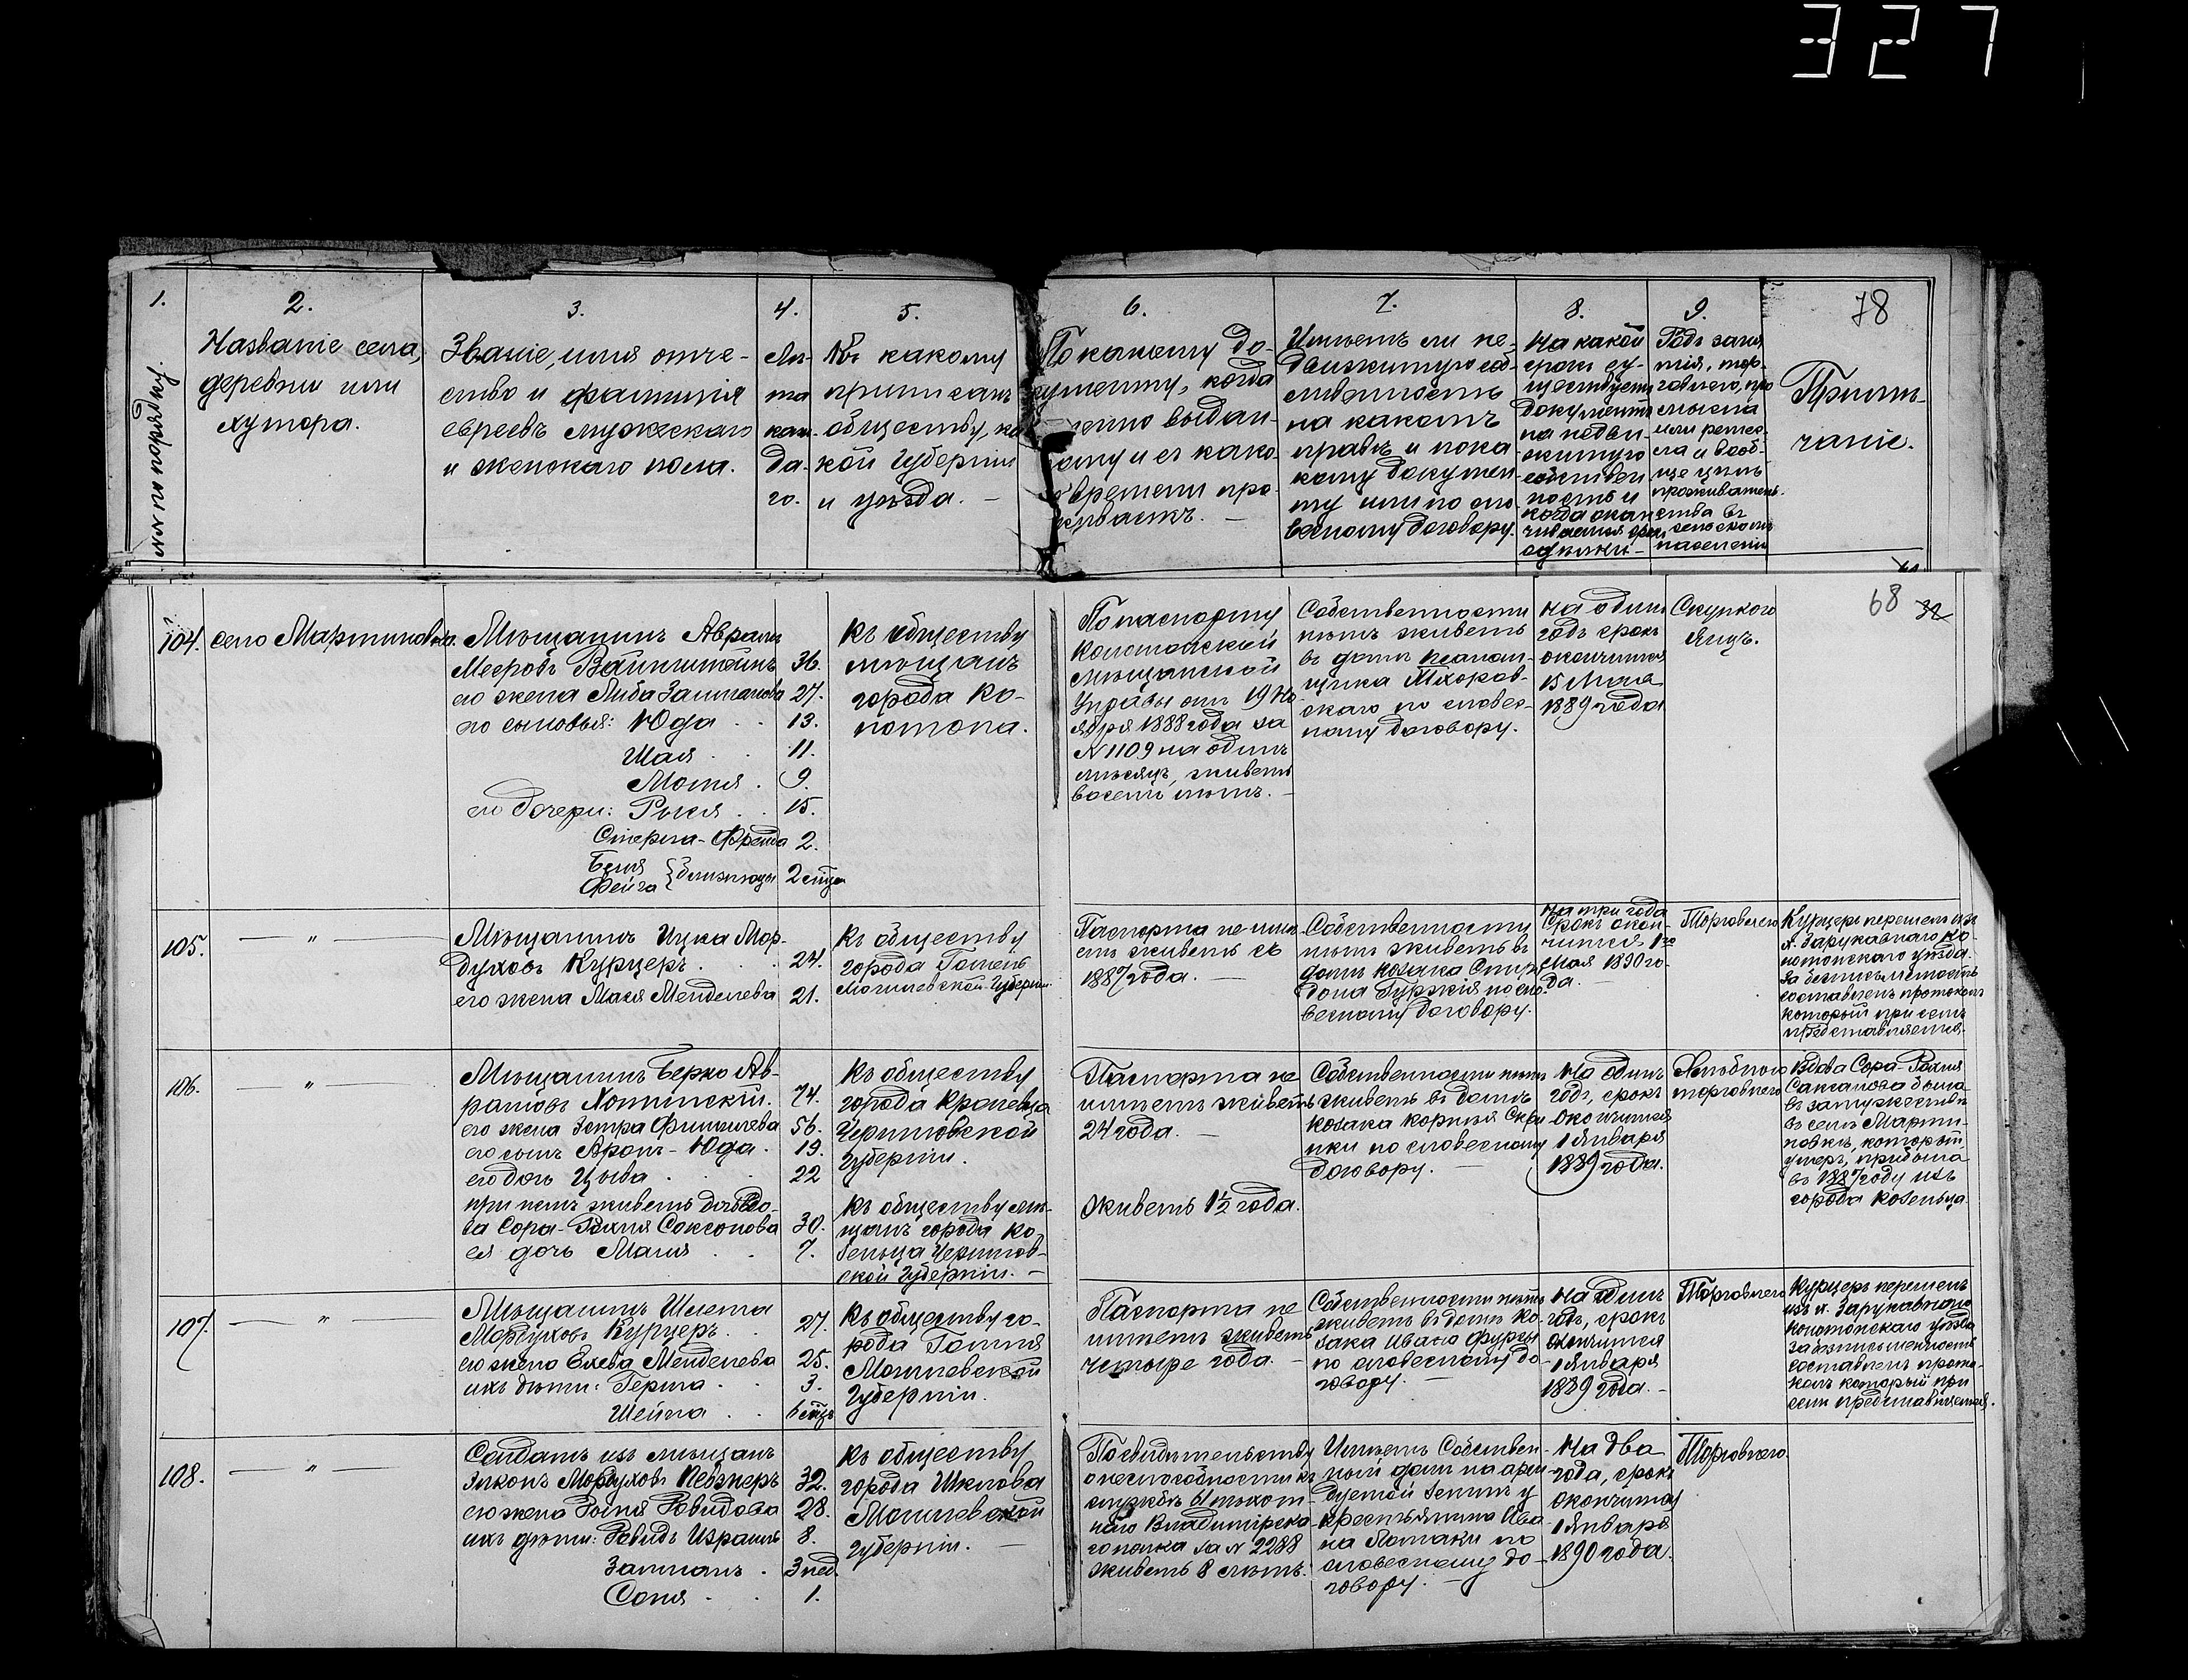 327
78
1.
№№ по порядку
2.
Названіе села,
деревни или
хутора.
3.
Званіе, имя отче-
ство и фамилія
евреевъ мужескаго
и женскаго пола.
4.
Лѣ-
та
каж-
да-
го.
5.
Къ какому
приписанъ
обществу, ка
кой Губерніи
и уѣзда. —
6.
По какому до-
кументу, когда
выдан-
ому и съ како
времени про-
живаетъ. —
7.
Имѣетъ ли не-
движимую соб-
ственность
на какомъ
правѣ и пока
кому докумен-
ту или по сло-
весному договору.
8.
На какой
срокъ су-
ществуетъ
документъ
на недви-
жимую
собствен
ность и
когда окан
чивается срокъ
9.
Родъ заня
тія, тор-
говлею, про
мысла
или ремес-
ла и вооб-
ще цѣль
проживатель-
ства въ
сельскомъ
населеніи
Примѣ-
чаніе.
68 32
104.
село Мартиновка.
Мѣщанинъ Аврамъ
Мееровъ Вайнштейнъ 36.
его жена Либа Залманова 27.
его сыновья: Юда . . 13.
Шая . . 11.
Мотя . 9.
его дочери: Рыся . . 15.
Стерна-Фрейда 2.
Беня
Фейга } близнецы 2 мѣсца
Къ обществу
мѣщанъ
города Ко-
нотопа.
По паспорту
Конотопской
Мѣщанской
Управы отъ 19 Но
ября 1888 года за
№ 1109 на одинъ
мѣсяцъ, живетъ
восемь лѣтъ. —
Собственности
нѣтъ живетъ
въ домѣ
скаго по словес-
ному договору.
на одинъ
годъ срокъ
окончится
15 Мая
1889 года
Скупкою
яицъ.
105.
— " —
Мѣщанинъ Ицка Мор-
духовъ Курцеръ . . . 24.
его жена Мася Менделева 21.
Къ обществу
города Гомель
Могилевской Губерніи.
Паспорта не имѣ
етъ живетъ съ
1887 года. —
Собственности
нѣтъ живетъ въ
домѣ козака Спири
дона Гуржія по сло-
весному договору.
на три года
срокъ окон-
чится 1го
Мая 1890 го-
да. —
Торговлею
Курцеръ перешелъ изъ
х. Зарукавнаго Ко-
нотопскаго уѣзда.
За безписьменность
составленъ протоколъ
который при семъ
представляется.
106.
— " —
Мѣщанинъ Берко Ав-
рамовъ Хотинскій. 74.
его жена Эстра Фишилева 56.
его сынъ Аронъ-Юда . 19.
его дочь Цыва . . . 22
при немъ живетъ дочь вдо-
ва Сора-Рахля Соксонова 30.
ея дочь Маня . . . 7.
Къ обществу
города Кролевца
Черниговской
Губерніи.
Къ обществу мѣ-
щанъ города Ко-
зельца Чернигов-
ской Губерніи. —
Паспорта не
имѣетъ живетъ
24 года. —
Живетъ 1½ года.
Собственности нѣтъ
живетъ въ домѣ
козака Корнія
по словесному
договору. —
На одинъ
годъ, срокъ
окончится
1 Января
1889 года.
Хлѣбною
торговлею
Вдова Сора-Рахля
Саксанова была
въ замужествѣ
въ селѣ Марти-
новкѣ, который
умеръ, прибыла
въ 1887 году изъ
города Козельца.
107.
— " —
Мѣщанинъ Шлема
Мордуховъ Курцеръ . 27.
его жена Менделева 25.
ихъ дѣти: Герша . . 3.
Шейна . . 6 мѣсц
Къ обществу го-
рода Гомля
Могилевской
Губерніи.
Паспорта не
имѣетъ живетъ
четыре года. —
Собственности нѣтъ
живетъ въ домѣ Ко-
зака Ивана Фурсы
по словесному до-
говору. —
На одинъ
годъ, срокъ
окончится
1 Января
1889 года. —
Торговлею
Курцеръ перешелъ
изъ х. Зарукавнаго
Конотопскаго уѣзда
За безписьменность
составленъ прото-
колъ который при
семъ представляется.
108.
— " —
Солдатъ изъ мѣщанъ
Элконъ Мордуховъ Певзнеръ 32.
его жена Давидова 28.
ихъ дѣти: Давидъ Израиль 8.
Залманъ . 3 нед.
Соня . . 1.
Къ обществу
города Шклова
Могилевской
Губерніи. —
По свидѣтельству
о неспособности къ
службѣ 61 пѣхот-
наго Владимірска-
го полка за № 2288
живетъ 8 лѣтъ.
Имѣетъ Собствен-
ный домъ на арен-
дуемой землѣ у
крестьянина Ива-
на по
словесному до-
говору. —
На два
года, срокъ
окончится
1 Января
1890 года.
Торговлею